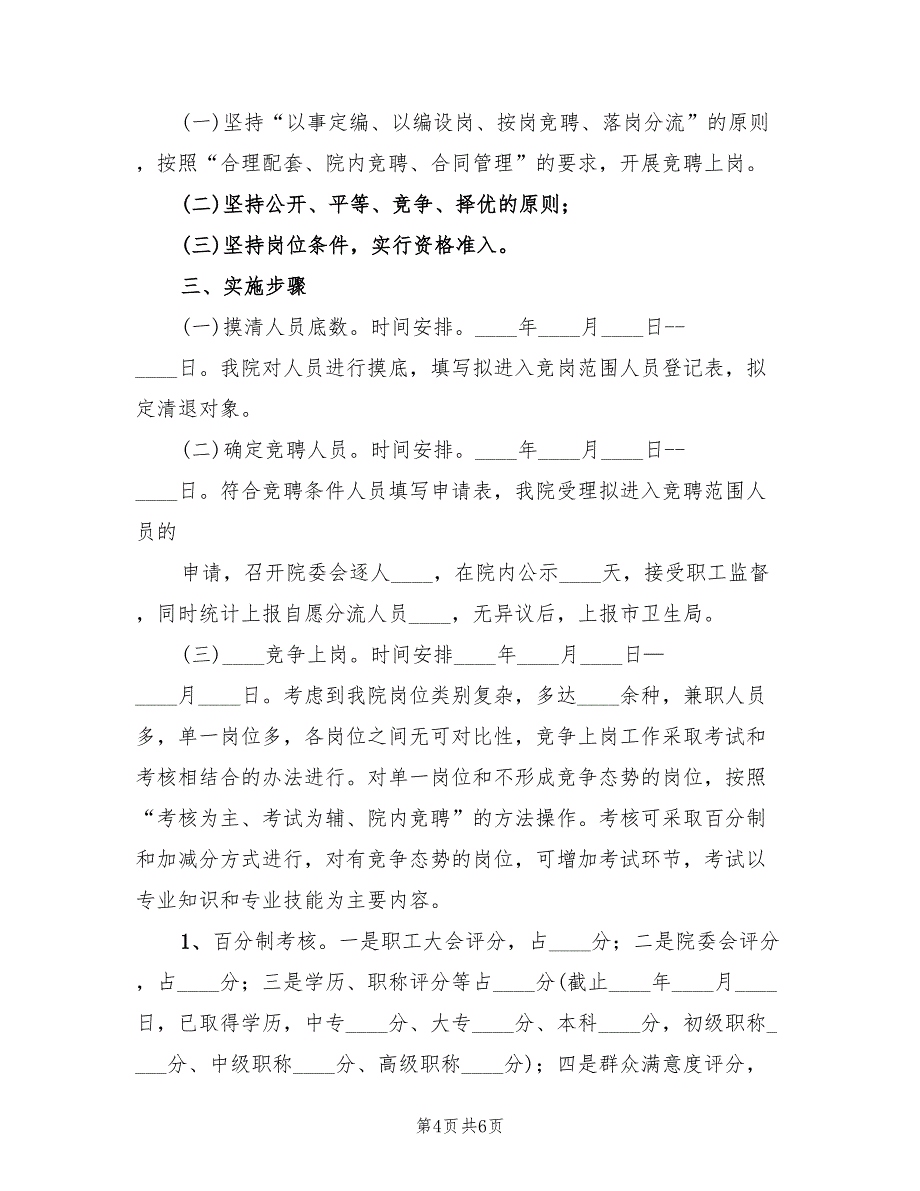 (一)坚持“以事定编、以编设岗、按岗竞聘、落岗分流”的原则
，按照“合理配套、院内竞聘、合同管理”的要求，开展竞聘上岗。
(二)坚持公开、平等、竞争、择优的原则；
(三)坚持岗位条件，实行资格准入。
三、实施步骤
(一)摸清人员底数。时间安排。____年____月____日--
____日。我院对人员进行摸底，填写拟进入竞岗范围人员登记表，拟
定清退对象。
(二)确定竞聘人员。时间安排。____年____月____日--
____日。符合竞聘条件人员填写申请表，我院受理拟进入竞聘范围人
员的
申请，召开院委会逐人____，在院内公示____天，接受职工监督
，同时统计上报自愿分流人员____，无异议后，上报市卫生局。
(三)____竞争上岗。时间安排____年____月____日—
____月____日。考虑到我院岗位类别复杂，多达____余种，兼职人员
多，单一岗位多，各岗位之间无可对比性，竞争上岗工作采取考试和
考核相结合的办法进行。对单一岗位和不形成竞争态势的岗位，按照
“考核为主、考试为辅、院内竞聘”的方法操作。考核可采取百分制
和加减分方式进行，对有竞争态势的岗位，可增加考试环节，考试以
专业知识和专业技能为主要内容。
1、百分制考核。一是职工大会评分，占____分；二是院委会评分
，占____分；三是学历、职称评分等占____分(截止____年____月____
日，已取得学历，中专____分、大专____分、本科____分，初级职称_
___分、中级职称____分、高级职称____分)；四是群众满意度评分，
第4页共6页